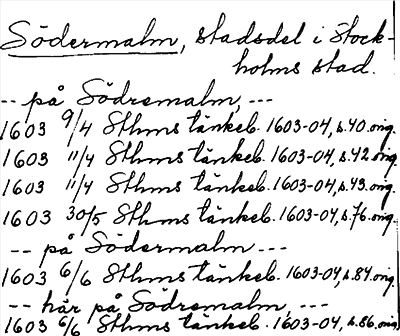 Södermalm, stadsdel i Stock-
holms stad.
-- på Södremalm, ---
1603 9/4 Sthms tänkeb. 1603-04, s. 40. orig.
1603 11/4 Sthms tänkeb. 1603-04, s. 42. orig.
1603 11/4 Sthms tänkeb. 1603-04, s. 43. orig.
1603 30/5 Sthms tänkeb. 1603-04, s. 76. orig.
-- på Södermalm ---
1603 6/6 Sthms tänkeb. 1603-04, s. 84. orig.
-- här på Södremalm, ---
1603 6/6 Sthms tänkeb. 1603-04, s. 86. orig.